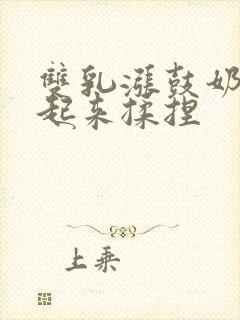 雙乳漲鼓奶
起来揉捏
上乘